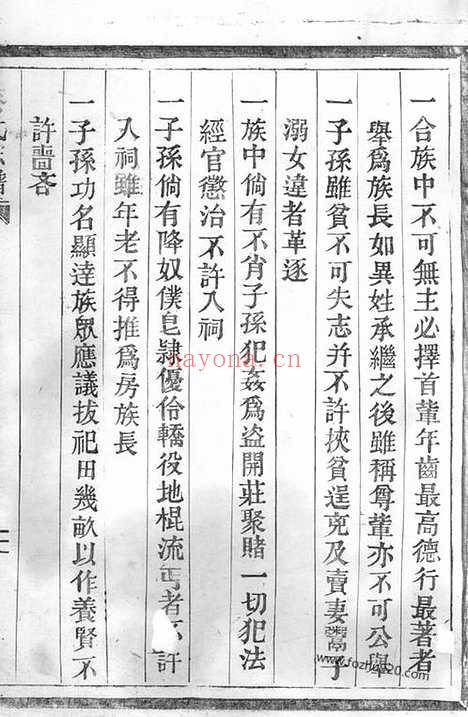 一合族中不可無主必擇首輩年齒最高德行最著者
舉爲族長如異姓承繼之後雖稱尊輩亦不可公舉
一子孫雖貧不可失志并不許挾貧逞兇及賣妻鬻子
溺女違者革逐
一族中倘有不肖子孫犯姦爲盜開莊聚賭一切犯法
經官懲治不許入祠
一子孫倘有降奴僕皂隸優伶轎役地棍流丐者不許
入祠雖年老不得推爲房族長
一子孫功名顯達族衆應議拔祀田幾畝以作養賢不
許嗇吝
氏宗譜
nayona.cn
www.fozhu920.com